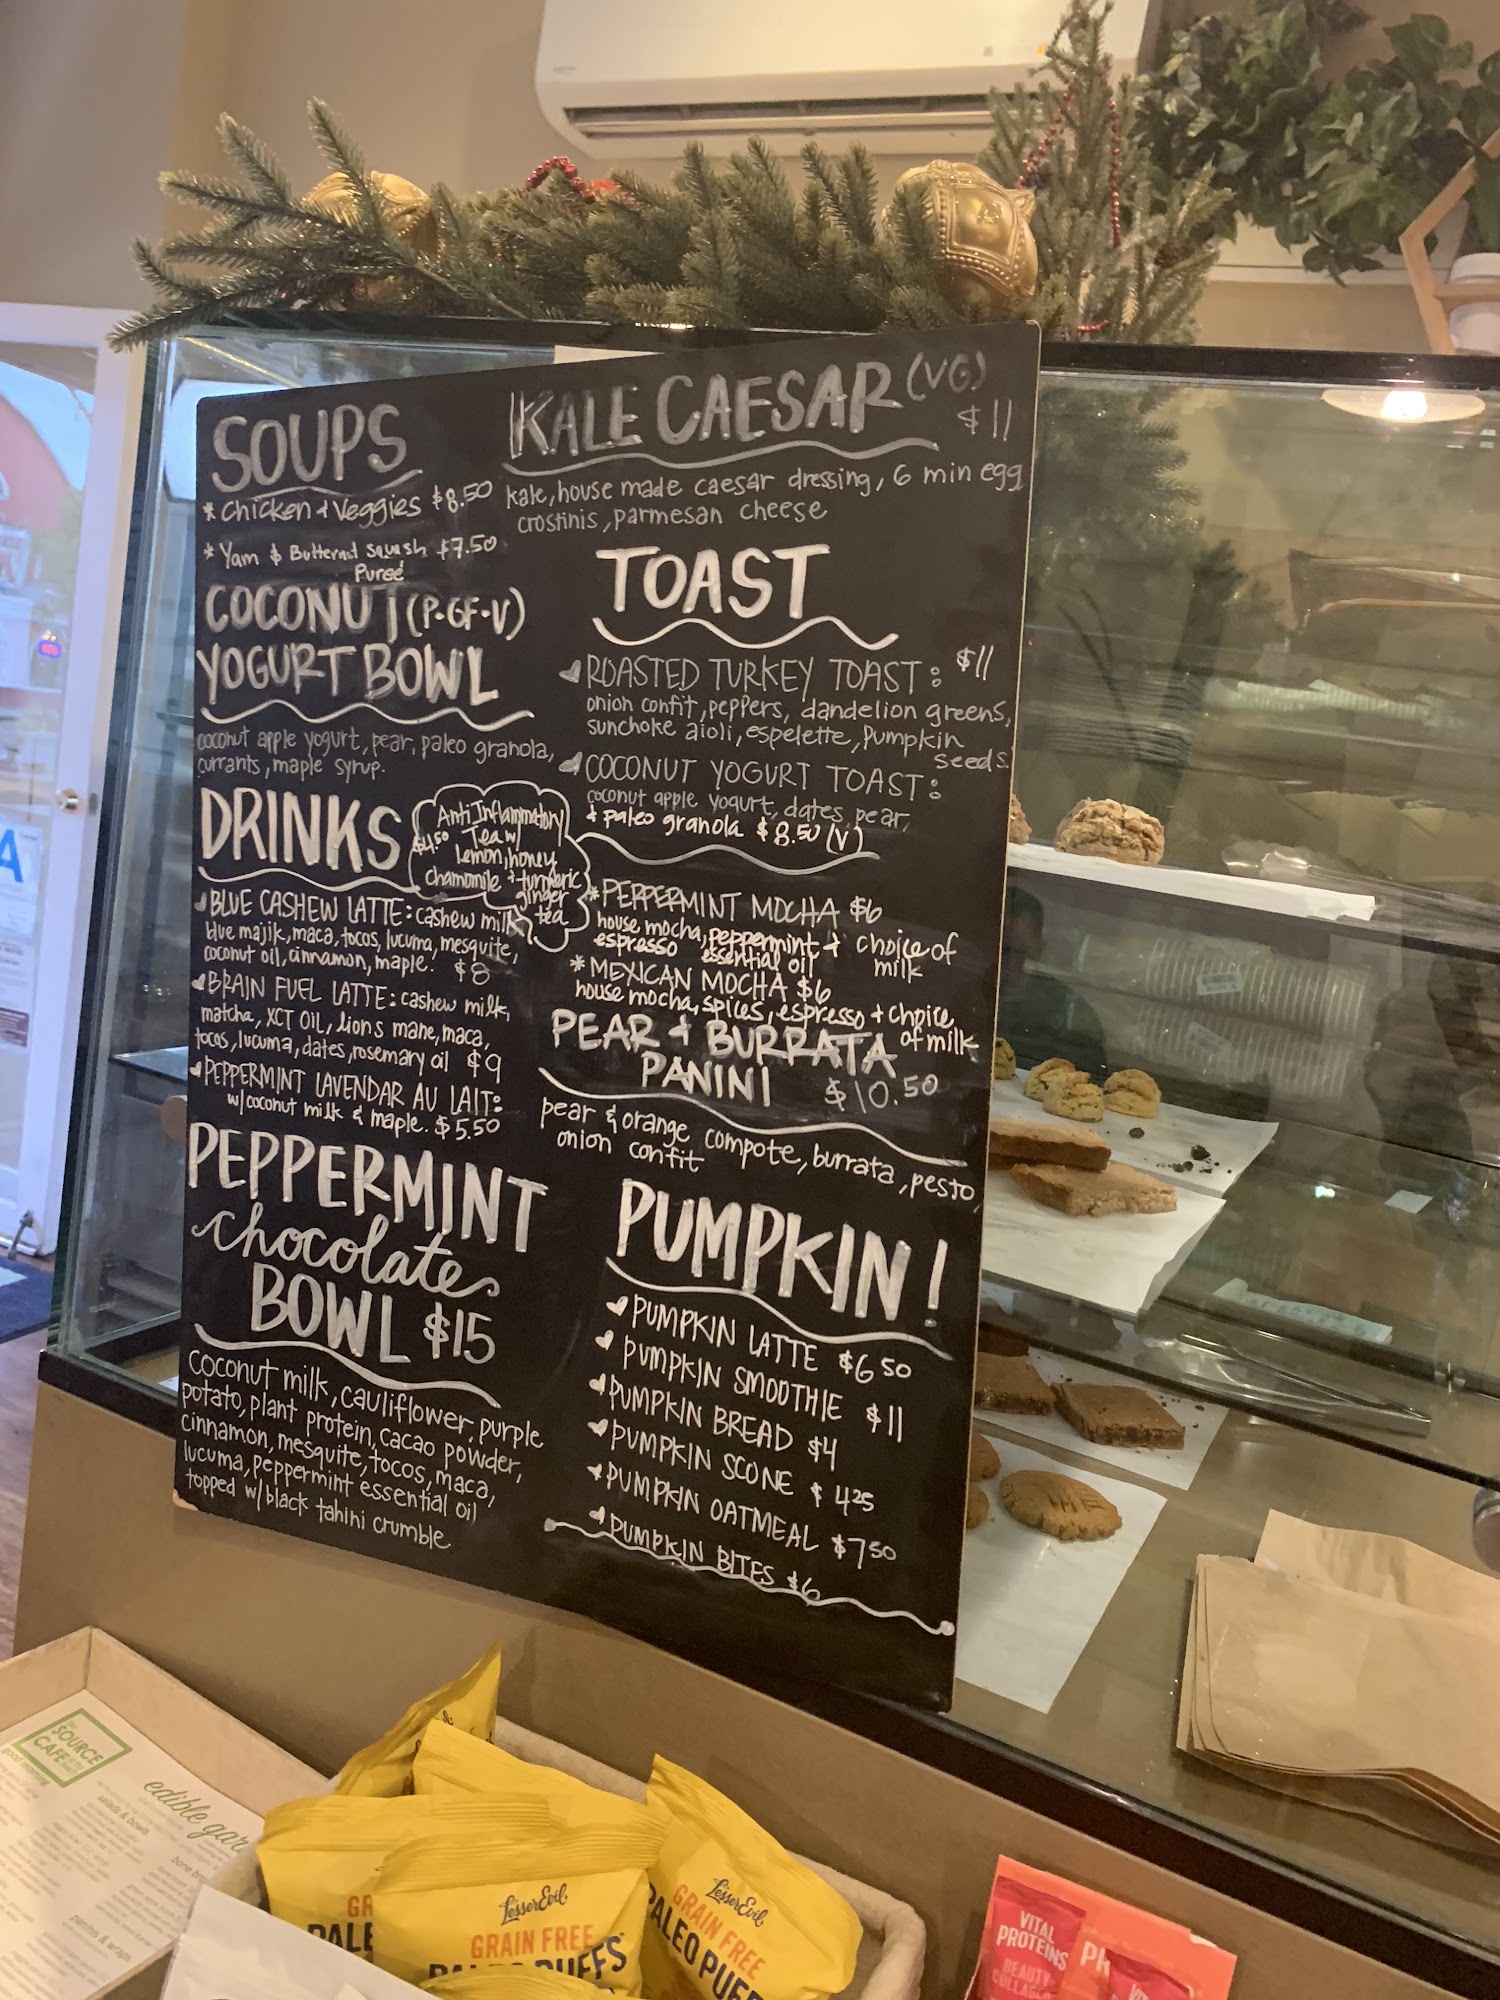 SOUPS
* Chicken & Veggies $8.50
* Yam & Butternut Squash $7.50
Pureé
COCONUT (P·GF·V)
YOGURT BOWL
coconut apple yogurt, pear, paleo granola,
currants, maple syrup.
DRINKS
Anti Inflammatory
$4.50 Tea w/
Lemon, honey
chamomile + turmeric
ginger
tea
BLUE CASHEW LATTE: cashew milk,
blue majik, maca, tocos, lucuma, mesquite,
coconut oil, cinnamon, maple. $8
BRAIN FUEL LATTE: cashew milk,
matcha, XCT OIL, lions mane, maca,
tocos, lucuma, dates, rosemary oil $9
PEPPERMINT LAVENDAR AU LAIT:
w/coconut milk & maple. $5.50
PEPPERMINT
chocolate
BOWL $15
coconut milk, cauliflower, purple
potato, plant protein, cacao powder,
cinnamon, mesquite, tocos, maca,
lucuma, peppermint essential oil
topped w/ black tahini crumble
KALE CAESAR (VG)
$11
kale, house made caesar dressing, 6 min egg
crostinis, parmesan cheese
TOAST
ROASTED TURKEY TOAST: $11
onion confit, peppers, dandelion greens,
sunchoke aioli, espelette, pumpkin
seeds.
COCONUT YOGURT TOAST:
coconut apple yogurt, dates, pear,
& paleo granola $8.50 (V)
* PEPPERMINT MOCHA $6
house mocha, peppermint & choice of
espresso essential oil milk
* MEXICAN MOCHA $6
house mocha, spices, espresso + choice
of milk
PEAR & BURRATA
PANINI $10.50
pear & orange compote, burrata, pesto
onion confit
PUMPKIN!
PUMPKIN LATTE $6 50
PUMPKIN SMOOTHIE $11
PUMPKIN BREAD $4
PUMPKIN SCONE $4 25
PUMPKIN OATMEAL $7 50
PUMPKIN BITES $6
A
SOURCE
CAFE
good morning
edible gar
salads & bowls
bone bro
paninis & wraps
LesserEvil
GRAIN FREE
PALEO PUFFS
LesserEvil
GRAIN FREE
PALEO PUF
GR
PALE
VITAL
PROTEINS
BEAUTY
COLLAGEN